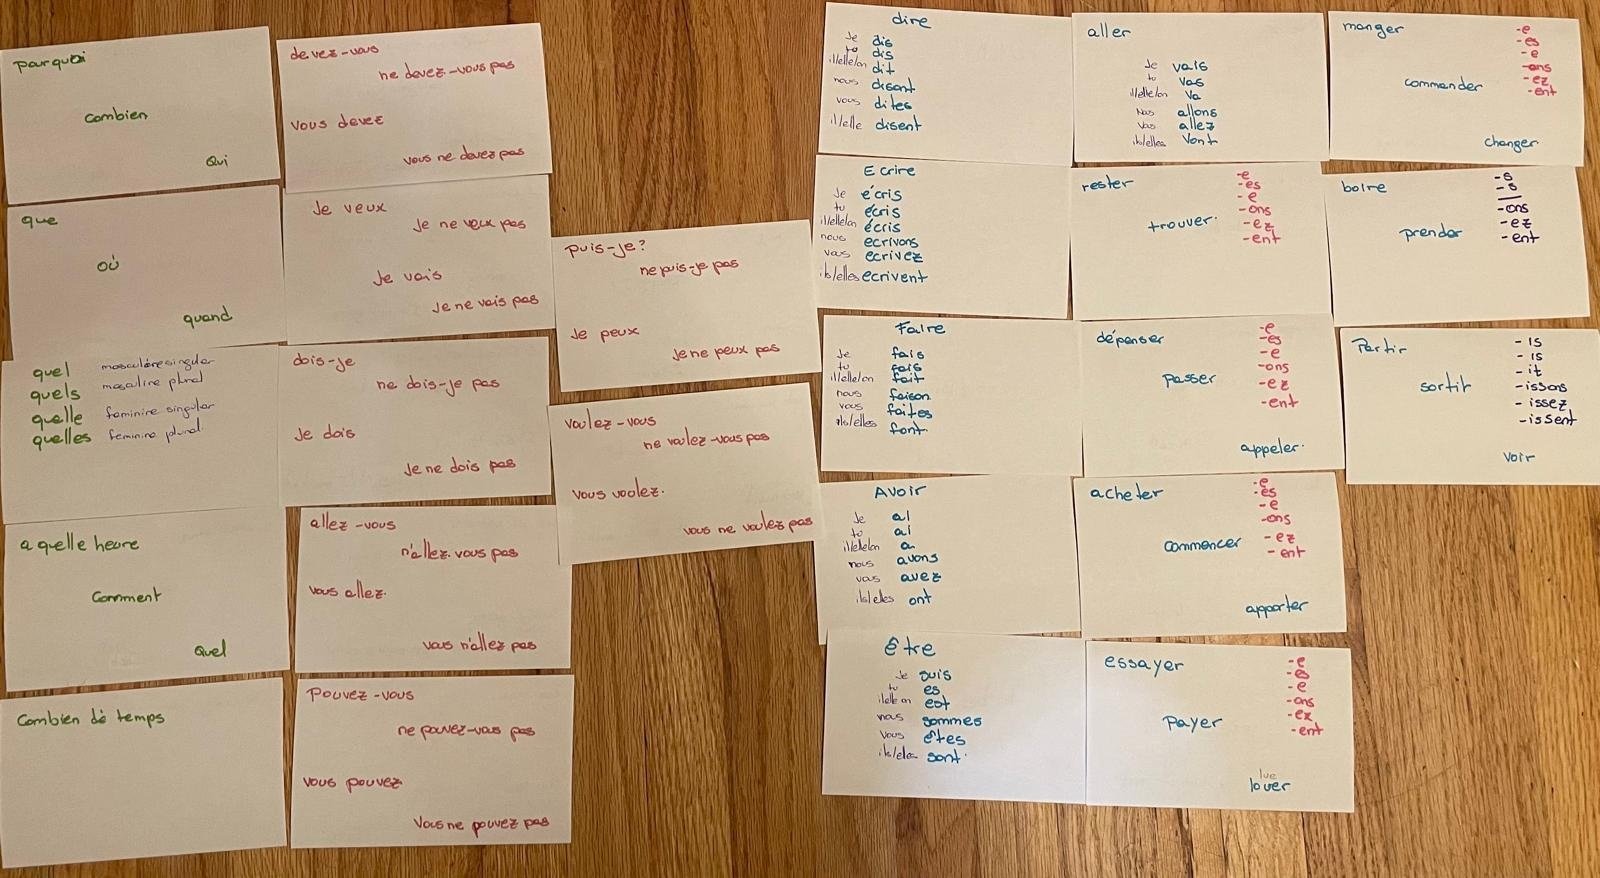 pourquoi
combien
Qui
que
où
quand
quel masculine singular
quels masculine plural
quelle feminine singular
quelles feminine plural
a quelle heure
Comment
Quel
Combien de temps
devez-vous
ne devez-vous pas
vous devez
vous ne devez pas
Je veux
Je ne veux pas
Je vais
Je ne vais pas
dois-je
ne dois-je pas
Je dois
Je ne dois pas
allez-vous
n'allez-vous pas
vous allez.
vous n'allez pas
Pouvez-vous
ne pouvez-vous pas
vous pouvez
Vous ne pouvez pas
puis-je?
ne puis-je pas
Je peux
Je ne peux pas
voulez-vous
ne voulez-vous pas
vous voulez.
vous ne voulez pas
dire
Je dis
tu dis
il/elle/on dit
nous disent
vous dites
il/elle disent
Ecrire
Je écris
tu écris
il/elle/on écris
nous ecrivons
vous ecrivez
ils/elles ecrivent
Faire
Je fais
tu fais
il/elle/on fait
nous faison
vous faites
ils/elles font.
Avoir
Je ai
tu ai
il/elle/on a
nous avons
vous avez
ils/elles ont
Être
Je suis
tu es
il/elle on est
nous sommes
Vous êtes
ils/elles sont.
aller
Je vais
tu vas
il/elle/on va
Nous allons
Vous allez
ils/elles vont
rester
trouver.
-e
-es
-e
-ons
-ez
-ent
dépenser
passer
appeler.
-e
-es
-e
-ons
-ez
-ent
acheter
commencer
apporter
-e
-es
-e
-ons
-ez
-ent
essayer
Payer
lue
louer
-e
-es
-e
-ons
-ex
-ent
manger
commander
changer.
-e
-es
-e
-ons
-ez
-ent
boire
prender
-s
-s
-ons
-ez
-ent
Partir
sortir
voir
-is
-is
-it
-issons
-issez
-issent